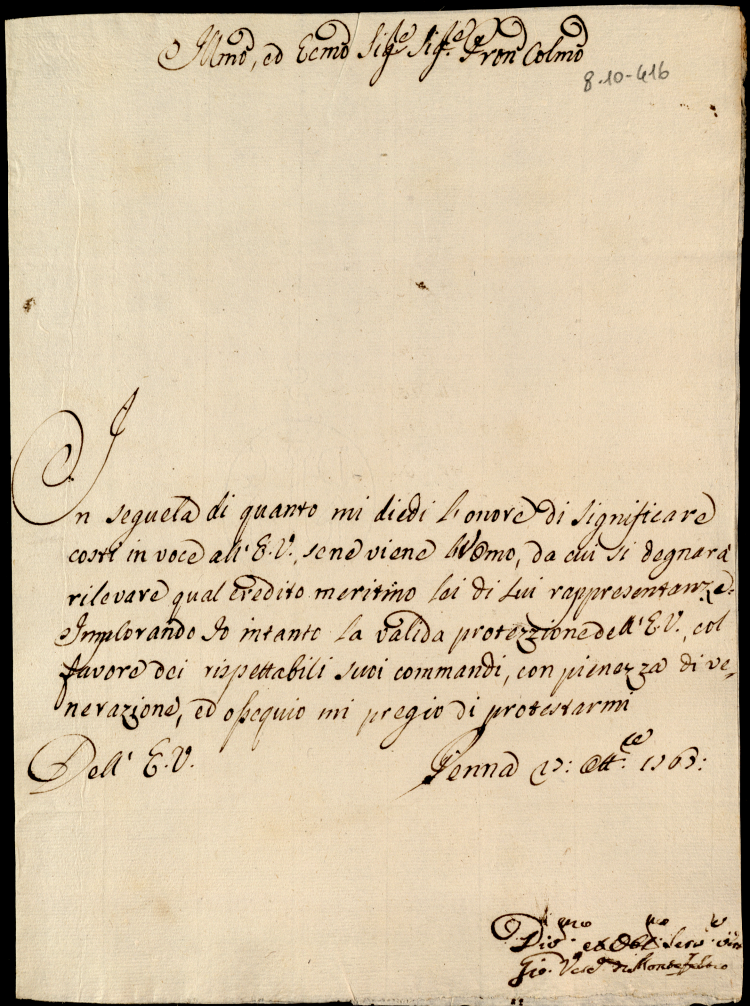 Illmo, ed Ecmo Sigre Sigre Pron Colmo
8-10-416
In seguela di quanto mi diedi l'onore di significare
costì in voce all' E.V., sene viene l'Uomo, da cui si degnarà
rilevare qual credito meritino lei di lui rappresentanze.
Implorando Io intanto la valida protezzione dell' E.V., col
favore dei rispettabili suoi commandi, con pienezza di ve,,
nerazione, ed ossequio mi pregio di protestarmi
Dell' E.V. Penna 17: Ottre 1763:
Divmo ed Obbmo Serve
Gio. Vesco di Montefeltro